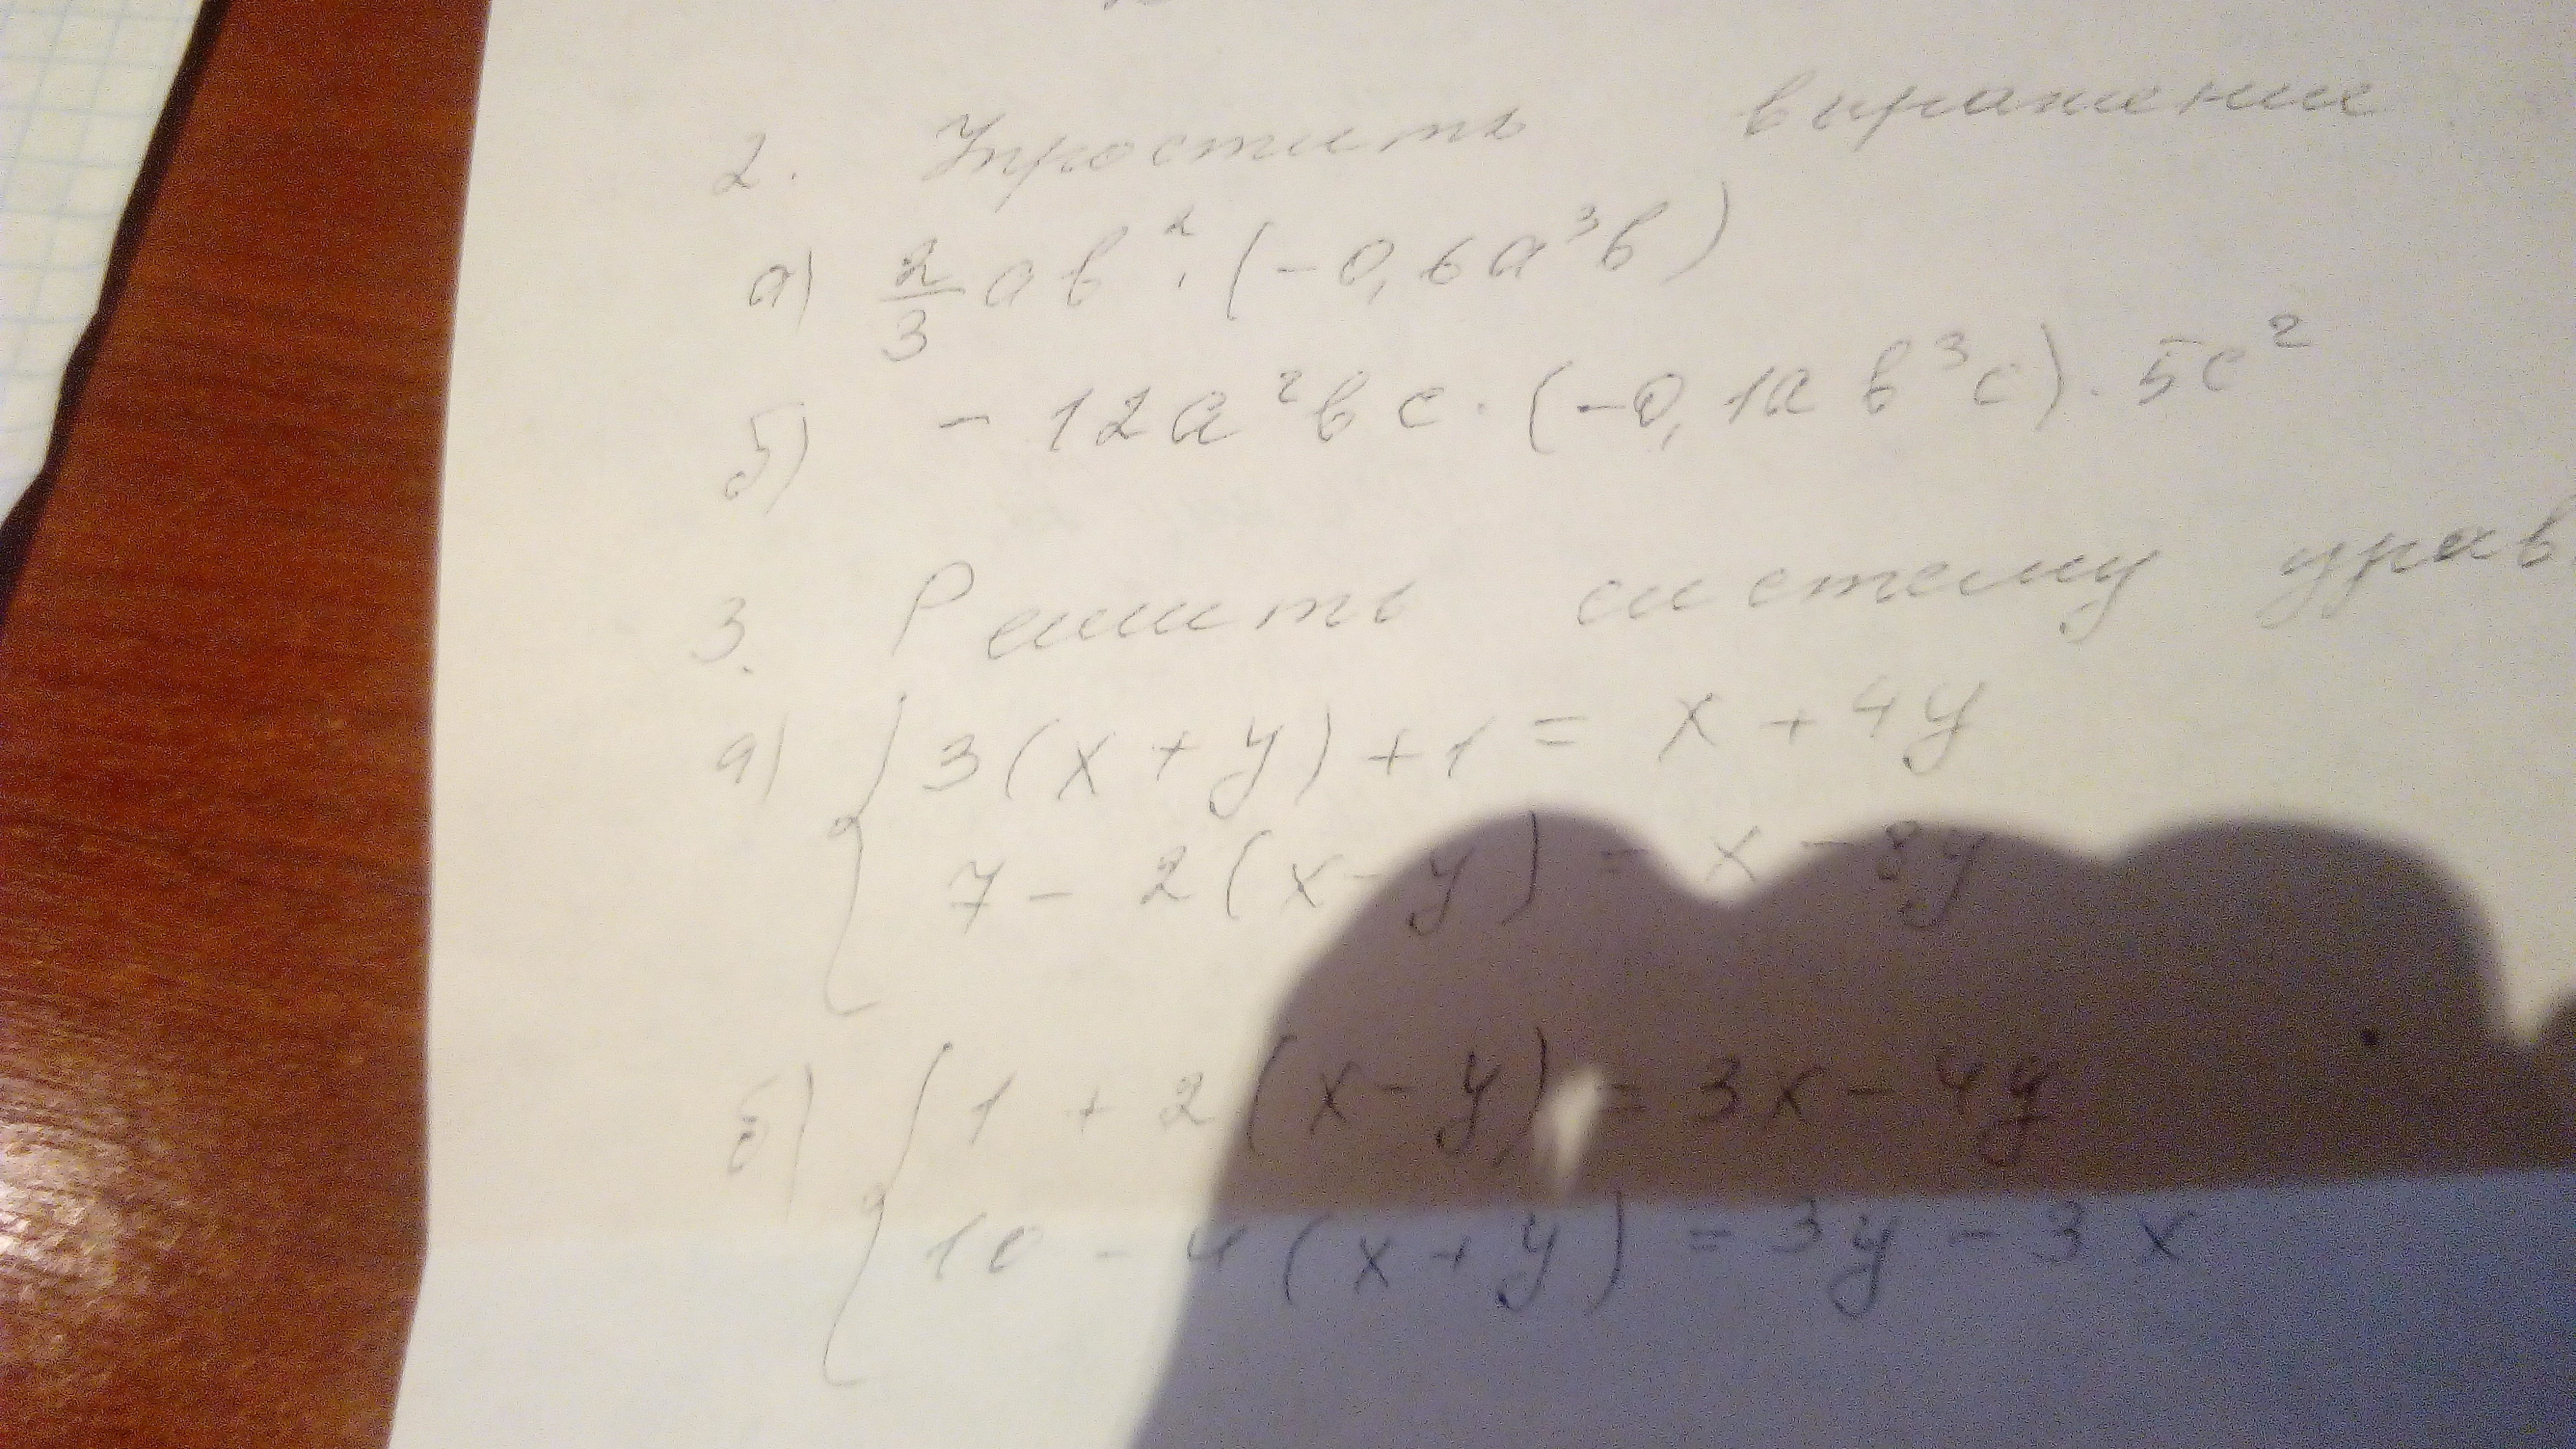 2. Упростить выражение
а) 2/3 ab² · (-0,6a³b)
б) - 12a²bc · (-0,1ab³c) · 5c²
3. Решить систему урав
а) { 3(x + y) + 1 = x + 4y
7 - 2(x - y) = x - 8y
б) { 1 + 2(x - y) = 3x - 4y
10 - 4(x + y) = 3y - 3x